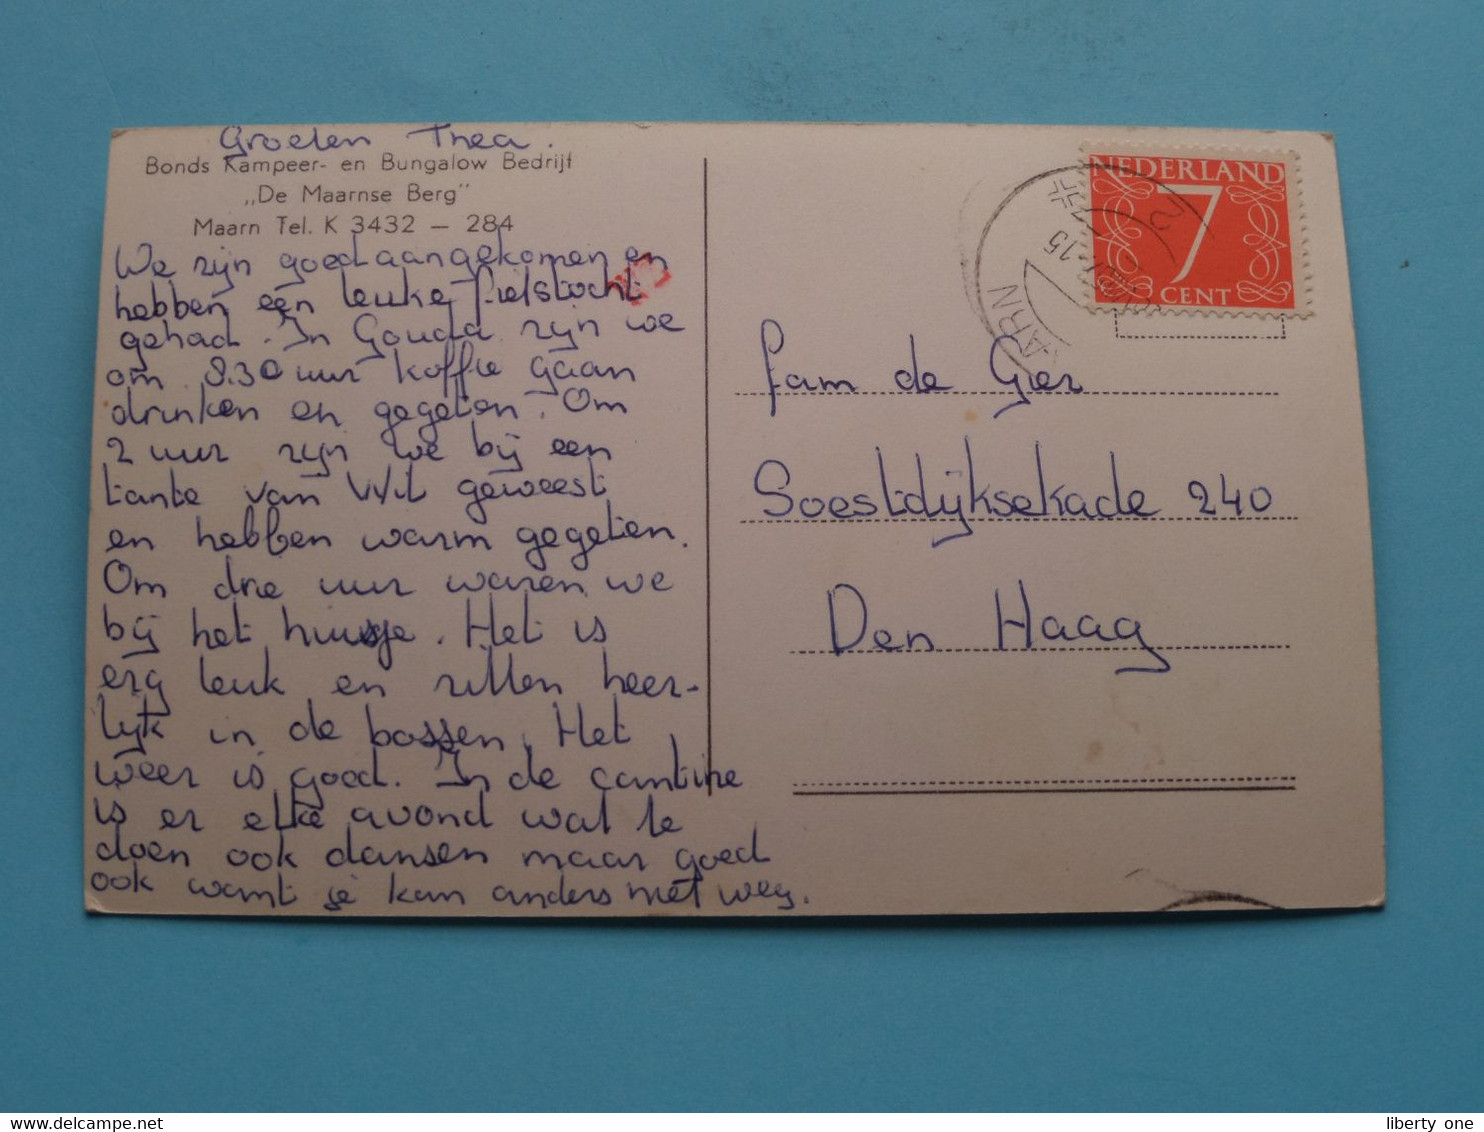 Groeten Thea.
Bonds Kampeer- en Bungalow Bedrijf
„De Maarnse Berg"
Maarn Tel. K 3432 — 284
We zijn goed aangekomen en
hebben een leuke fietstocht
gehad. In Gouda zijn we
om 8.30 uur koffie gaan
drinken en gegeten. Om
2 uur zijn we bij een
tante van Wil geweest
en hebben warm gegeten.
Om drie uur waren we
bij het huisje. Het is
erg leuk en zitten heer-
lijk in de bossen. Het
weer is goed. In de cantine
is er elke avond wat te
doen ook dansen maar goed
ook want je kan anders niet weg.
NEDERLAND
7
CENT
ARN
15
Fam de Gier
Soestdijksekade 240
Den Haag
liberty one